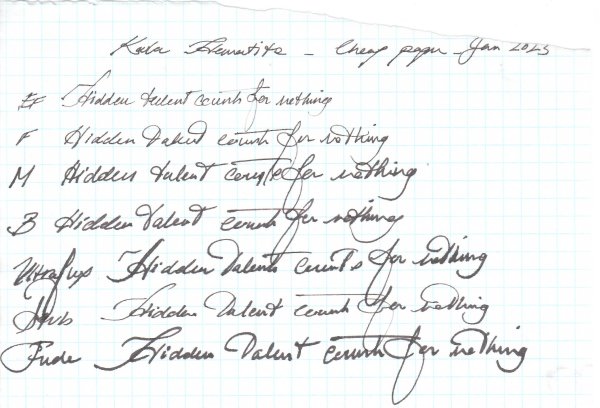 Kala Hematite - Cheap paper - Jan 2023
EF Hidden talent counts for nothing
F Hidden Talent counts for nothing
M Hidden talent counts for nothing
B Hidden Talent counts for nothing
Hidden Talents counts for nothing
Stub Hidden Talent counts for nothing
Fude Hidden Talent counts for nothing